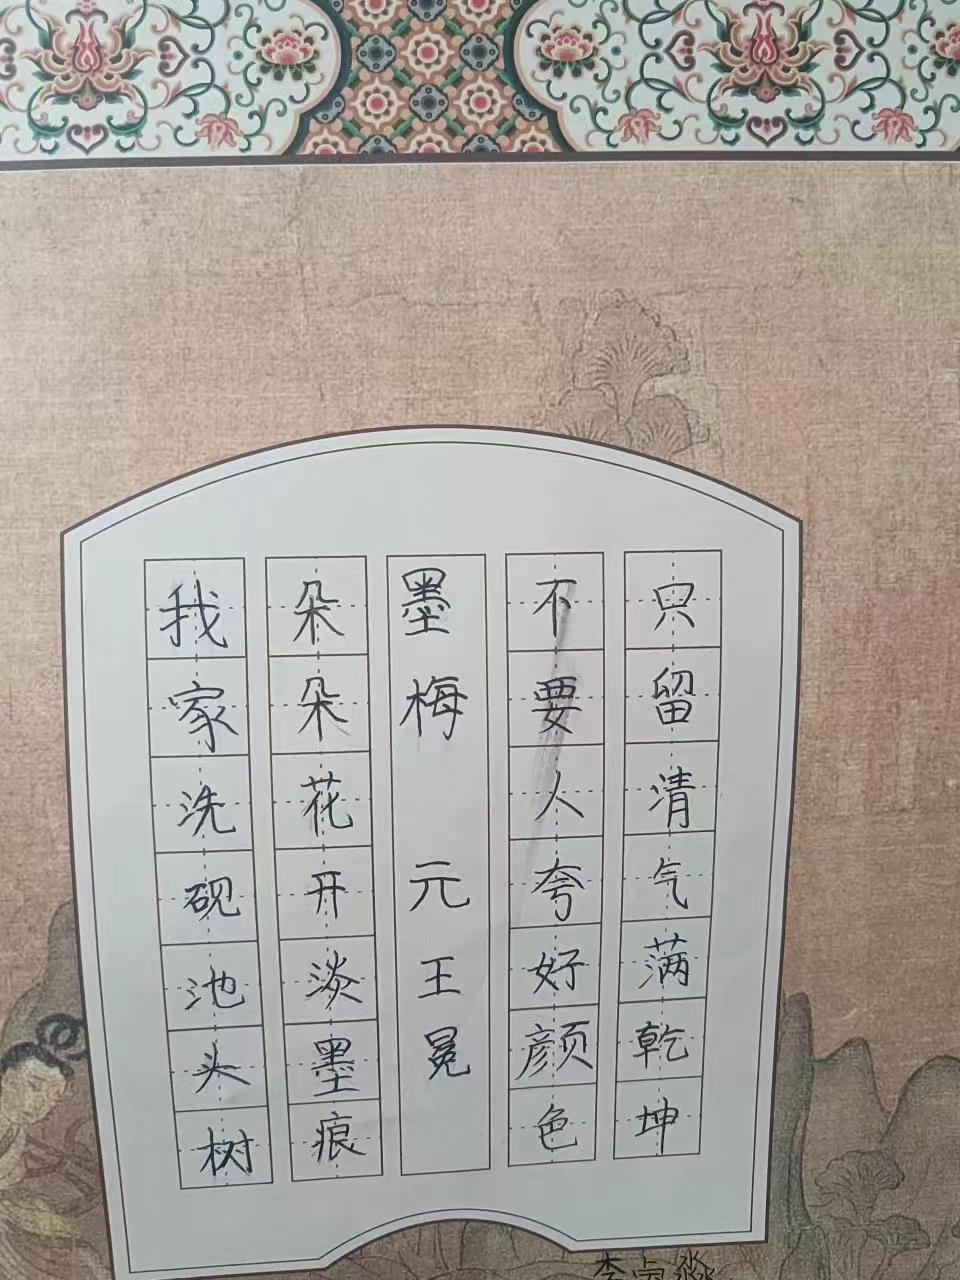 我家洗砚池头树
朵朵花开淡墨痕
墨梅 元 王冕
不要人夸好颜色
只留清气满乾坤